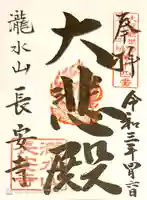 奉拝
令和三年四月六日
大悲殿
瀧水山 長安寺